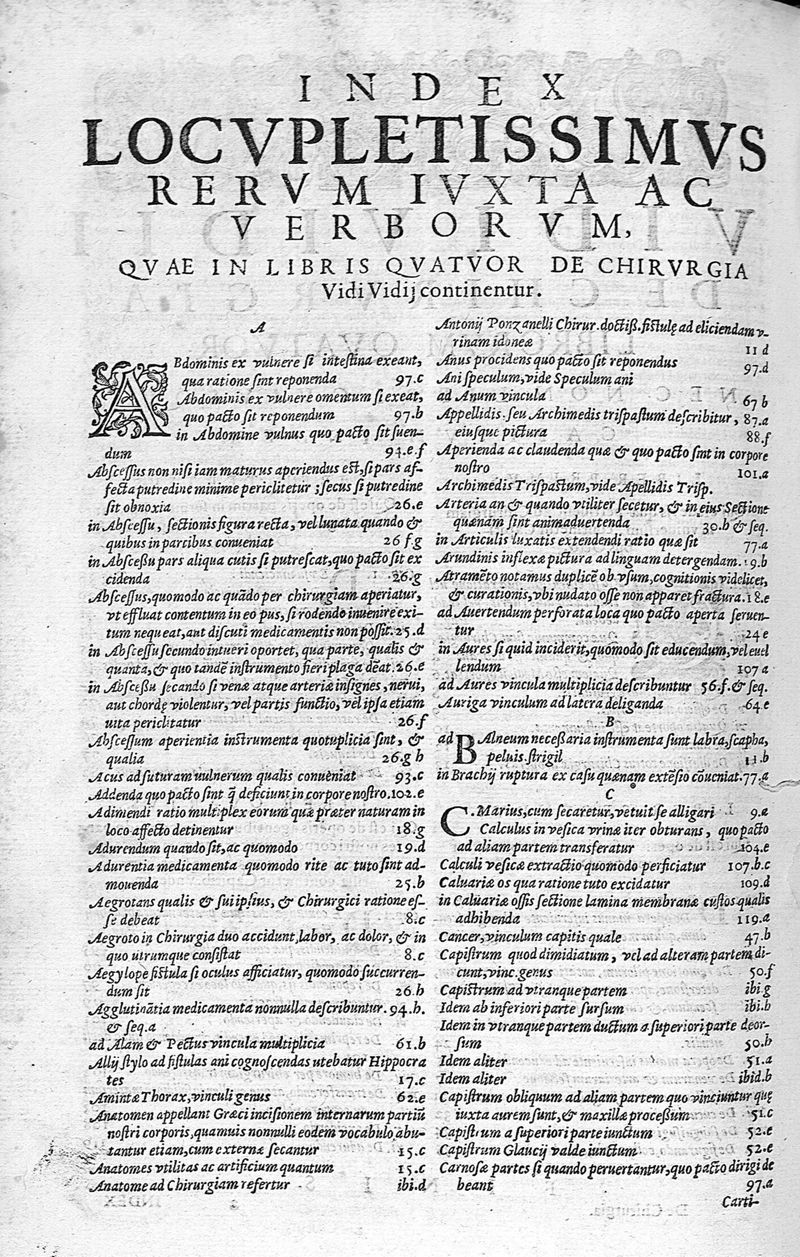 INDEX
LOCVPLETISSIMVS
RERVM IVXTA AC
VERBORVM,
QVAE IN LIBRIS QVATVOR DE CHIRVRGIA
Vidi Vidij continentur.
A
ABdominis ex vulnere si intestina exeant,
qua ratione sint reponenda 97.c
Abdominis ex vulnere omentum si exeat,
quo pacto sit reponendum 97.b
in Abdomine vulnus quo pacto sit suen-
dum 94.e.f
Abscessus non nisi iam maturus aperiendus est, si pars af-
fecta putredine minime periclitetur; secus si putredine
sit obnoxia 26.e
in Abscessu, sectionis figura recta, vel lunata quando &
quibus in partibus conueniat 26 f.g
in Abscessu pars aliqua cutis si putrescat, quo pacto sit ex
cidenda 26.g
Abscessus, quomodo ac quādo per chirurgiam aperiatur,
vt effluat contentum in eo pus, si rodendo inuenire exi-
tum nequeat, aut discuti medicamentis non possit. 25.d
in Abscessu secundo intueri oportet, qua parte, qualis &
quanta, & quo tandē instrumento fieri plaga dēat. 26.e
in Abscessu secando si venæ atque arteriæ insignes, nerui,
aut chordę violentur, vel partis functio, vel ipsa etiam
uita periclitatur 26.f
Abscessum aperientia instrumenta quotuplicia sint, &
qualia 26.g h
Acus ad suturam uulnerum qualis conueniat 93.c
Addenda quo pacto sint q̃ deficiunt in corpore nostro. 102.e
Adimendi ratio multiplex eorum quæ præter naturam in
loco affecto detinentur 18.g
Adurendum quando sit, ac quomodo 19.d
Adurentia medicamenta quomodo rite ac tuto sint ad-
mouenda 25.b
Aegrotans qualis & sui ipsius, & Chirurgici ratione es-
se debeat 8.c
Aegroto in Chirurgia duo accidunt, labor, ac dolor, & in
quo utrumque consistat 8.c
Aegylope fistula si oculus afficiatur, quomodo succurren-
dum sit 26.h
Agglutinātia medicamenta nonnulla describuntur. 94.h.
& seq.a
ad Alam & Pectus vincula multiplicia 61.b
Allij stylo ad fistulas ani cognoscendas utebatur Hippocra
tes 17.c
Amintæ Thorax, vinculi genus 62.e
Anatomen appellant Græci incisionem internarum partiū
nostri corporis, quamuis nonnulli eodem vocabulo abu-
tantur etiam, cum externæ secantur 15.c
Anatomes vtilitas ac artificium quantum 15.c
Anatome ad Chirurgiam refertur ibi.d
Antonij Ponzanelli Chirur. doctiß. fistulę ad eliciendam v-
rinam idoneæ 11 d
Anus procidens quo pacto sit reponendus 97.d
Ani speculum, vide Speculum ani
ad Anum vincula 67 b
Appellidis. seu Archimedis trispastum describitur, 87.a
eiusque pictura 88.f
Aperienda ac claudenda quæ & quo pacto sint in corpore
nostro 101.a
Archimedis Trispastum, vide Apellidis Trisp.
Arteria an & quando vtiliter secetur, & in eius Sectione
quænam sint animaduertenda 30.b & seq.
in Articulis luxatis extendendi ratio quæ sit 77.a
Arundinis inflexæ pictura ad linguam detergendam. 19.b
Atramēto notamus duplicē ob vsum, cognitionis videlicet,
& curationis, vbi nudato osse non apparet fractura. 18.e
ad Auertendum perforata loca quo pacto aperta seruen-
tur 24 e
in Aures si quid inciderit, quomodo sit educendum, vel euel
lendum 107 a
ad Aures vincula multiplicia describuntur 56.f.& seq.
Auriga vinculum ad latera deliganda 64 e
B
ad BAlneum necessaria instrumenta sunt labra, scapha,
peluis. strigil 11.b
in Brachij ruptura ex casu quænam extēsio cōueniat. 77.a
C
C. Marius, cum secaretur, vetuit se alligari 9.a
Calculus in vesica vrinæ iter obturans, quo pacto
ad aliam partem transferatur 104.e
Calculi vesicæ extractio quomodo perficiatur 107.b.c
Caluariæ os qua ratione tuto excidatur 109.d
in Caluariæ ossis sectione lamina membranæ custos qualis
adhibenda 119.a
Cancer, vinculum capitis quale 47.b
Capistrum quod dimidiatum, vel ad alteram partem di-
cunt, vinc. genus 50.f
Capistrum ad vtranque partem ibi.g
Idem ab inferiori parte sursum ibi.h
Idem in vtranque partem ductum a superiori parte deor-
sum 50.h
Idem aliter 51.a
Idem aliter ibid.b
Capistrum obliquum ad aliam partem quo vinciuntur quę
iuxta aurem sunt, & maxillæ processum 51.c
Capistrum a superiori parte iunctum 52.e
Capistrum Glaucij valde iunctum 52.e
Carnosæ partes si quando peruertantur, quo pacto dirigi de
beant 97.a
Carti-